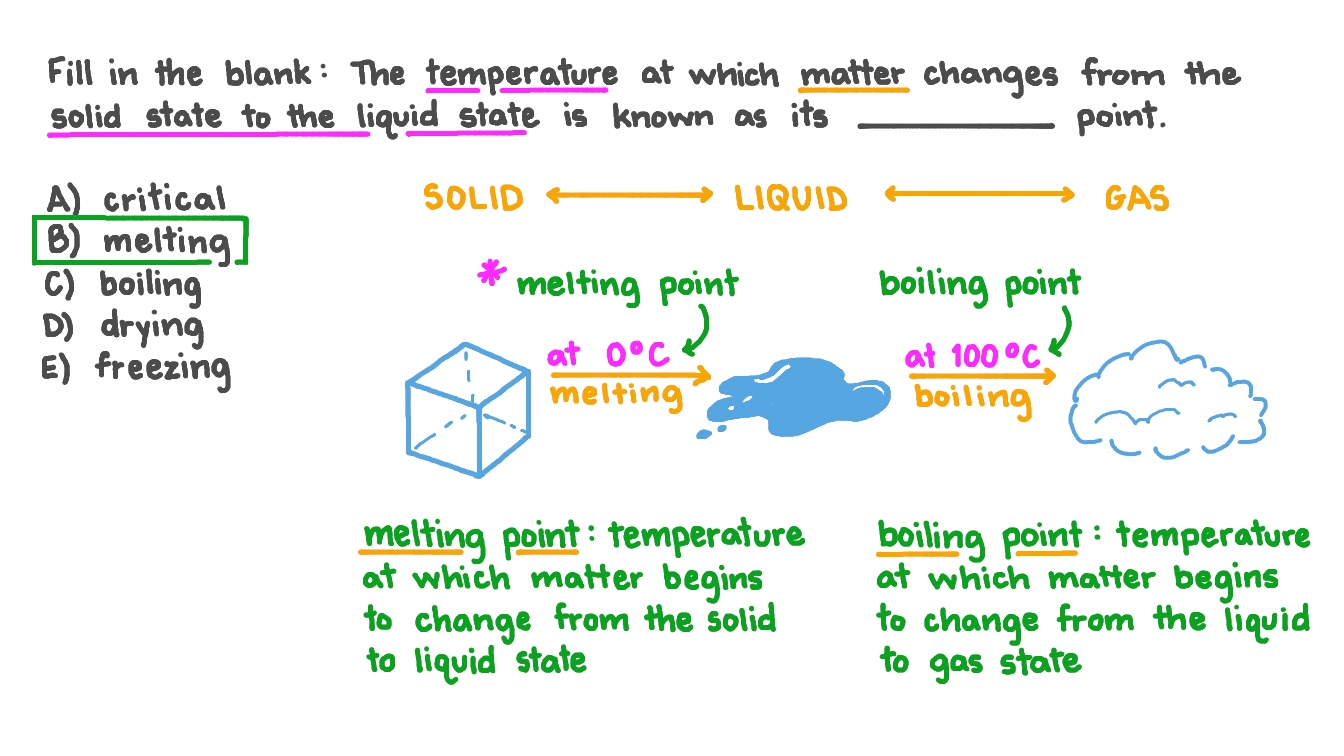 Fill in the blank: The temperature at which matter changes from the
solid state to the liquid state is known as its __________ point.
A) critical
B) melting
C) boiling
D) drying
E) freezing
SOLID LIQUID GAS
* melting point boiling point
at 0°C at 100°C
melting boiling
melting point: temperature
at which matter begins
to change from the solid
to liquid state
boiling point: temperature
at which matter begins
to change from the liquid
to gas state